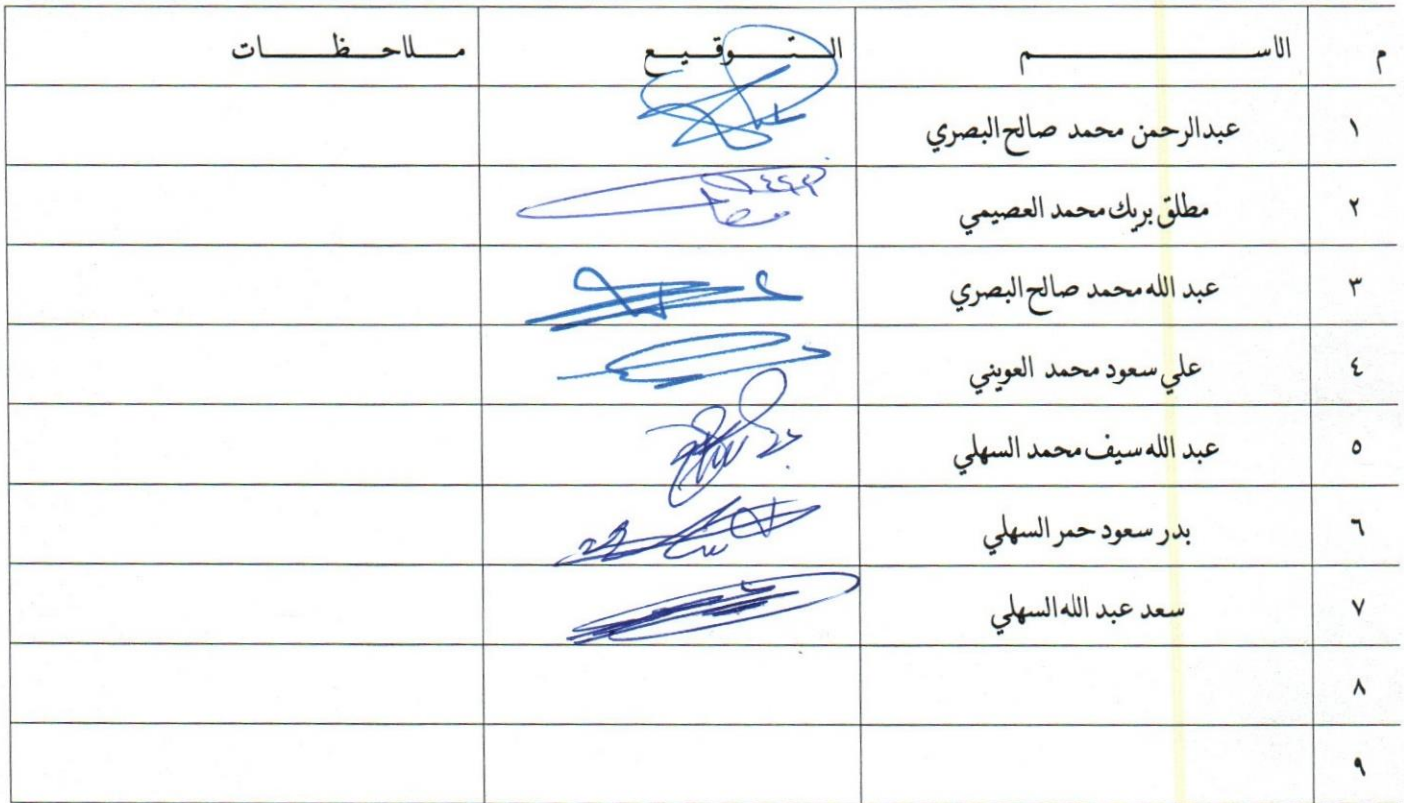 م الاسم التوقيع ملاحظات
١ عبدالرحمن محمد صالح البصري
٢ مطلق بريك محمد العصيمي
٣ عبد الله محمد صالح البصري
٤ علي سعود محمد العويني
٥ عبد الله سيف محمد السهلي
٦ بدر سعود حمر السهلي
٧ سعد عبد الله السهلي
٨
٩